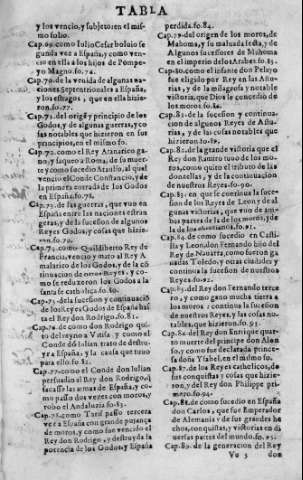 TABLA
y los vencio, y subjeto en el mis
mo folio.
Cap. 69. como Iulio Cesar boluio se
gunda vez a España, y como ven-
cio en ella a los hijos de Pompe-
yo Magno. fo. 74.
Cap. 70. de la venida de algunas na
ciones Septentrionales a España,
y los estragos, que en ella hizie
ron. fo. 77.
Cap. 71. del origē y principio de los
Godos, y de algunas guerras, y co
sas notables que hizieron en sus
principios, en el mismo fo.
Cap. 72. como el Rey Atanarico ga-
no, y saqueo a Roma, de su muer-
te y como sucedio Ataulfo, al qual
vencio el Conde Constancio, y de
la primera entrada de los Godos
en España. fo. 78.
Cap. 73. de las guerras, que vuo en
España entre las naciones estran
geras, y de la sucesion de algunos
Reyes Godos, y cosas que hizie-
ron. fo. 79.
Cap. 74. como Quildiberto Rey de
Francia, vencio y mato al Rey A
malarico de los Godos, y de la cō
tinuacion de otros Reyes, y co-
mo se reduxeron los Godos a la
santa fe catholica. fo.
Cap. 75. de la sucesion y continuaciō
de los Reyes Godos de España has
ta el Rey don Rodrigo. fo. 81.
Cap. 76. de como don Rodrigo qui-
to del reyno a Vtisa, y como el
Conde dō Iulian trato de destru-
yr a España, y la causa que tuuo
para ello. fo. 82.
Cap. 77. como el Conde don Iulian
persuadio al Rey don Rodrigo, q̄
sacasse las armas de España, y co-
mo passo dos vezes con moros, y
robo el Andaluzia. fo. 83.
Cap. 78. como Tarif passo tercera
vez a España con grande pujança
de moros, y como fue vencido el
Rey don Rodrigo, y destruyda la
potencia de los Godos, y España
perdida. fo. 84.
Cap. 79. del origen de los moros, de
Mahoma, y su maluada secta, y de
algunos successores de Mahoma
en el imperio de los Arabes. fo. 85.
Cap. 80. como el infante don Pelayo
fue eligido por Rey en las Astu-
rias, y de la milagrosa y notable
vistoria, que Dios le concedio de
los moros. fo.
Cap. 81. de la sucesion y continua-
cion de algunos Reyes de Astu-
rias, y de las cosas notables que
hizieron. fo. 89.
Cap. 82. de la grande vitoria que el
Rey don Ramiro tuuo de los mo-
ros, con que quito el tributo de las
donzellas, y de la continuacion
de nuestros Reyes. fo. 90.
Cap. 83. en que se continua la suce-
sion de los Reyes de Leon, y de al
gunas vitorias, que vuo de am-
bas partes de la de los moros, y de
la de los christianos. fo. 91.
Cap. 84. de como sucedio en Casti-
lla y Leon, don Fernando hijo del
Rey de Nauarra, como fueron ga
nadas Toledo, y otras ciudades y
continua la sucesion de nuestros
Reyes. fo. 92.
Cap. 85. del Rey don Fernando terce
ro, y como gano mucha tierra a
los moros: continua la sucesion
de nuestros Reyes, y las cosas no-
tables, que hizieron. fo. 93.
Cap. 86. del Rey don Enrique quar-
to muerte del principe don Alon
so, y como fue declarada prince-
sa doña Ysabel, en el mismo fo.
Cap. 87. de los Reyes catholicos, de
las conquistas que hizieron,
y del Rey don Phelippe pri-
mero. fo. 94.
Cap. 88. de como sucedio en España
don Carlos, que fue Emperador
de Alemania y de sus grandes he
chos, conquistas, y vistorias en di
uersas partes del mundo. fo. 95.
Cap. 89. de la generacion del Rey
Vu 3 don